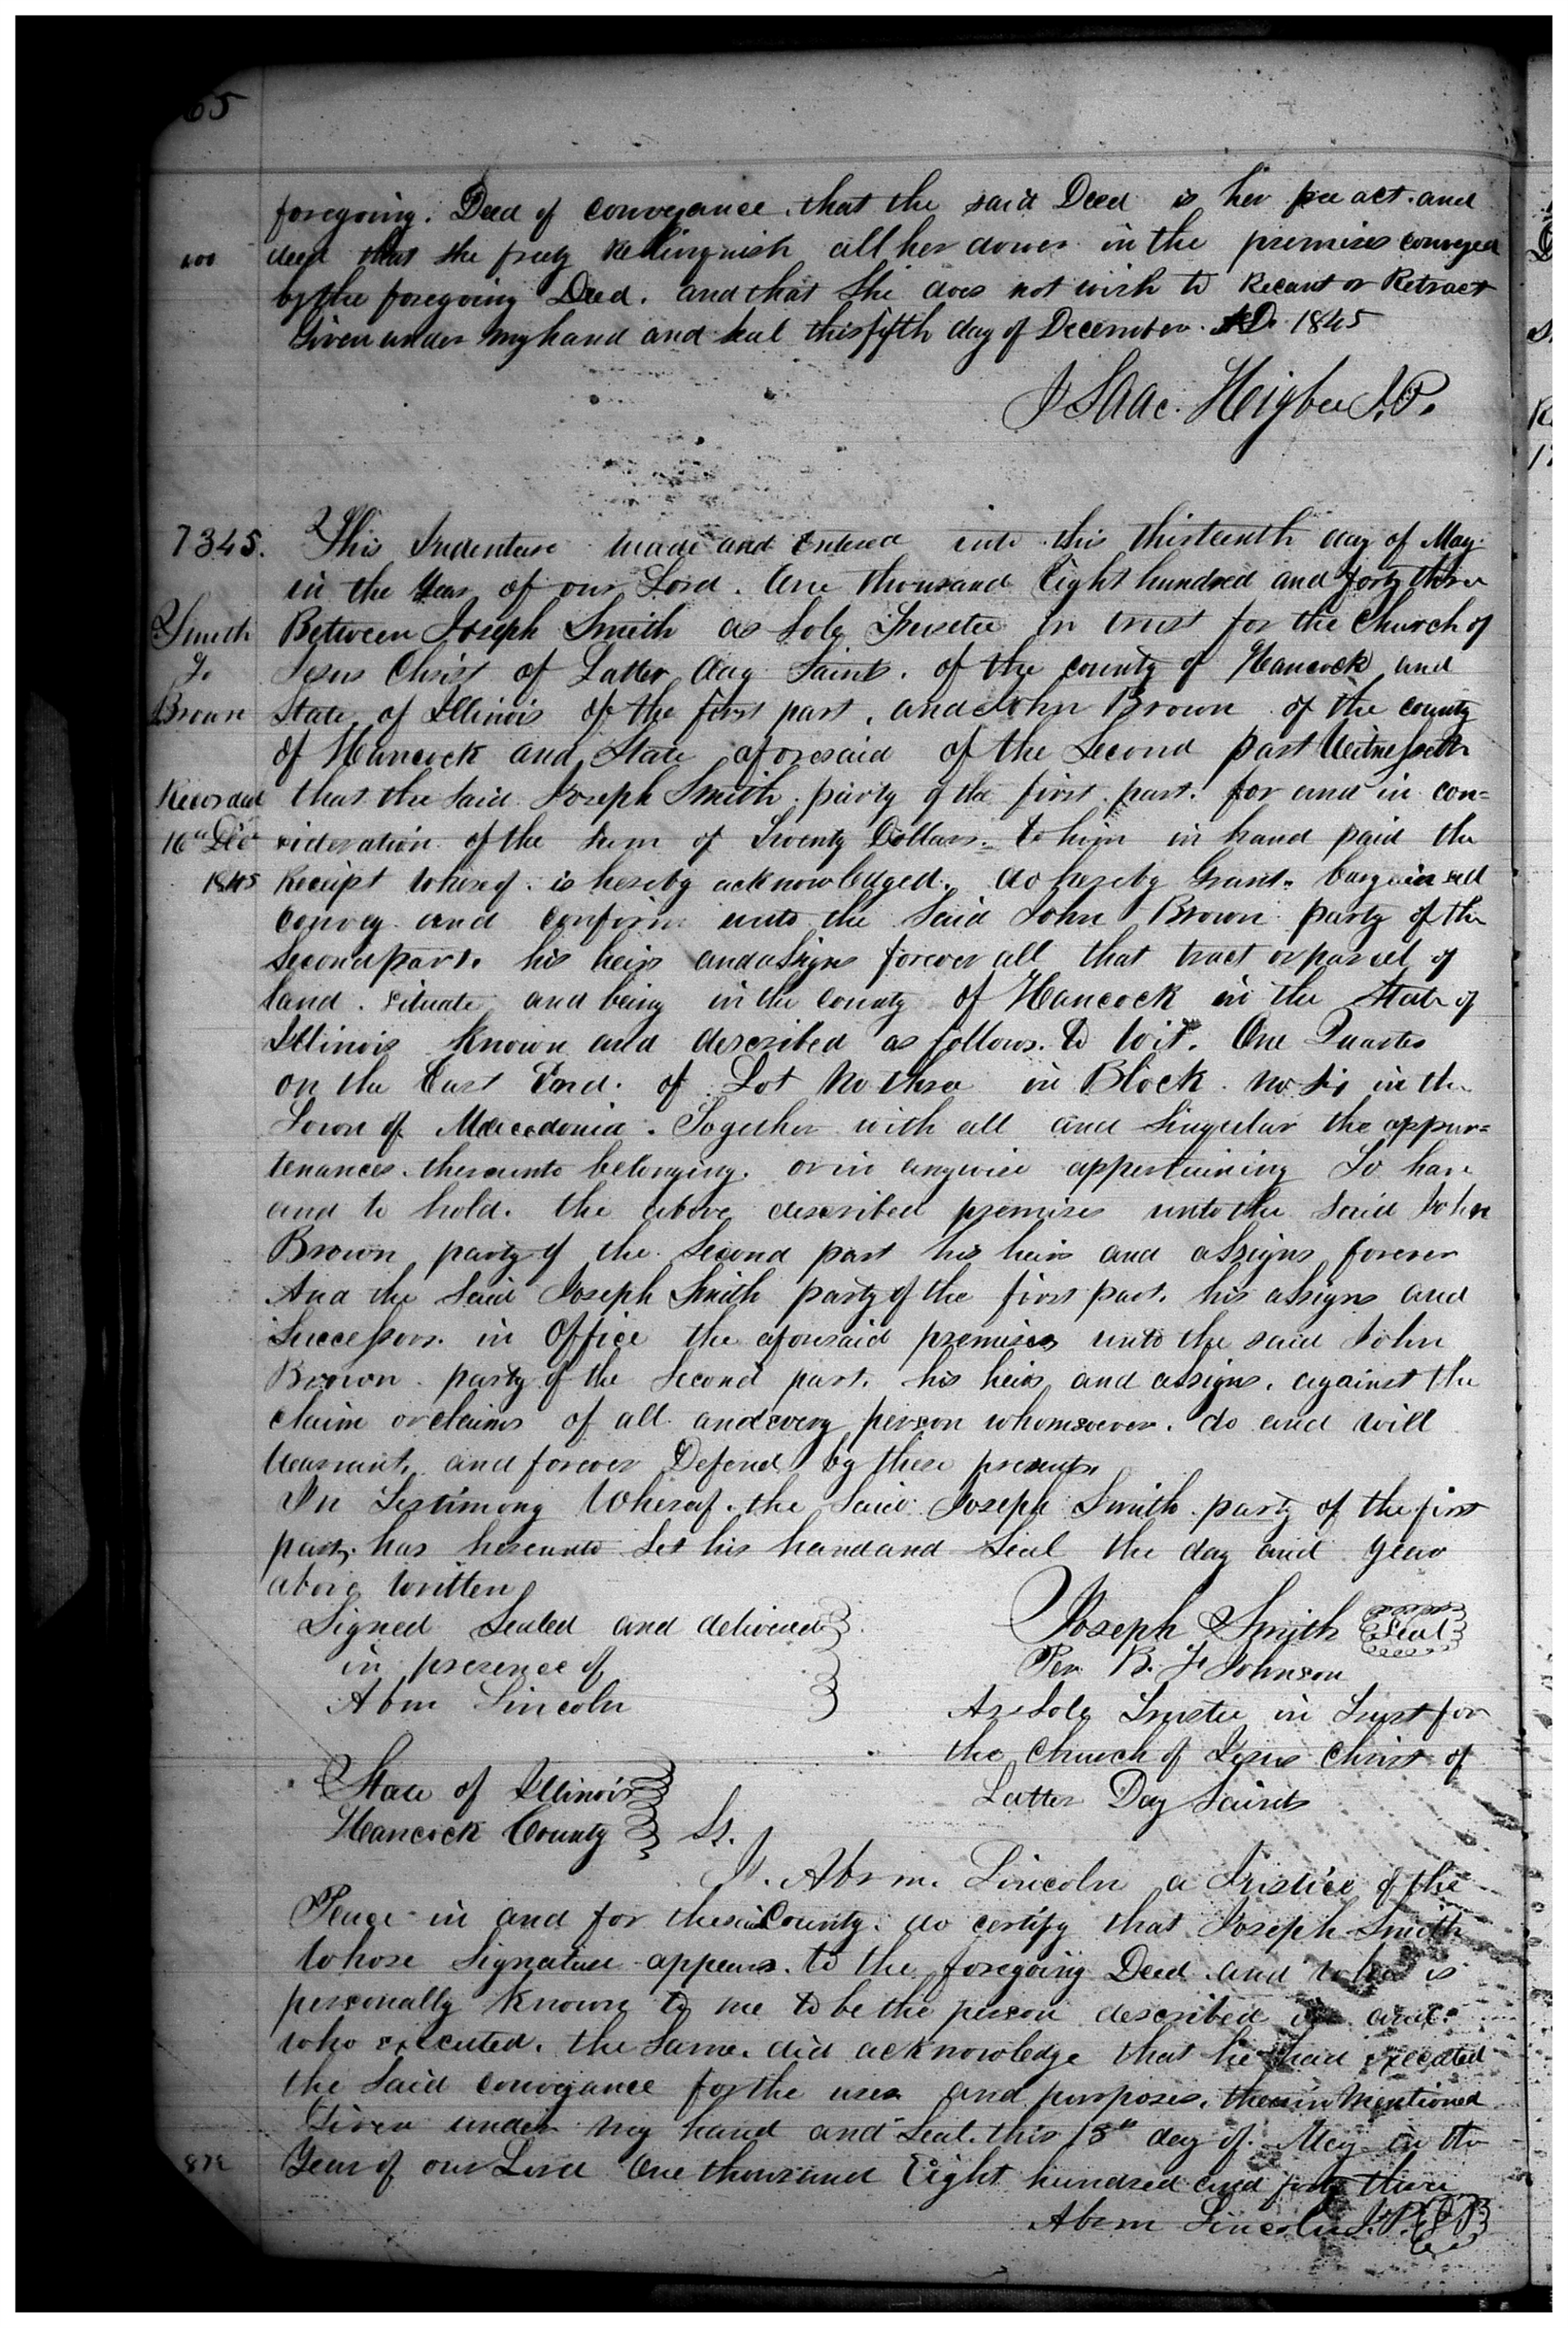 65
foregoing. Deed of conveyance. that the said Deed is her free act. and
deed that she freely Relinquish all her dower in the premises conveyed
by the foregoing Deed. and that She does not wish to Recant or Retract
Given under my hand and seal this fifth day of December. AD. 1845
Isaac. Heigbee J.P.
7345. This Indenture made and Entered into this thirteenth day of May
in the Year of our Lord. One thousand Eight hundred and forty three
Smith Between Joseph Smith as Sole Trustee in trust for the Church of
To Jesus Christ of Latter day Saints. of the county of Hancock and
Brown State of Illinois of the first part, and John Brown of the county
of Hancock and State aforesaid of the Second part Witnesseth
Recorded that the said Joseph Smith. party of the first part. for and in con=
16th Dec sideration of the sum of Twenty Dollars. to him in hand paid the
1845 Receipt whereof. is hereby acknowledged. do hereby Grant. bargain sell
convey and confirm unto the Said John Brown party of the
Second part. his heirs and assigns forever all that tract or parcel of
land. situate and being in the county of Hancock in the State of
Illinois Known and described as follows. to wit. One Quarter
on the East End. of Lot No three in Block. no six in the
Town of Macedonia. Together with all and Singular the appur=
tenances. thereunto belonging. or in anywise appertaining To have
and to hold. the above described premises unto the said John
Brown party of the Second part his heirs and assigns forever
And the said Joseph Smith party of the first part. his assigns and
Successors. in Office the aforesaid premises unto the said John
Brown. party of the Second part. his heirs and assigns. against the
claim or claims of all and every person whomsoever. do and will
Warrant, and forever Defend by these presents.
In Testimony Whereof. the Said Joseph Smith. party of the first
part. has hereunto Set his hand and Seal the day and year
above written
Signed Sealed and delivered
in presence of
Abm Lincoln
Joseph Smith Seal
Per B. F Johnson
As Sole Trustee in Trust for
the Church of Jesus Christ of
Latter Day Saints
State of Illinois
Hancock County Ss.
I. Abrm. Lincoln a Justice of the
Peace in and for the said County. do certify that Joseph Smith
whose Signature appears. to the foregoing Deed and who is
personally Known to me to be the person described in and
who executed. the Same. did acknowledge that he had executed
the Said conveyance for the uses and purposes. therein mentioned
Given under my hand and Seal. this 13th day of. May in the
Year of our Lord One thousand Eight hundred and forty three
Abrm Lincoln J.P.